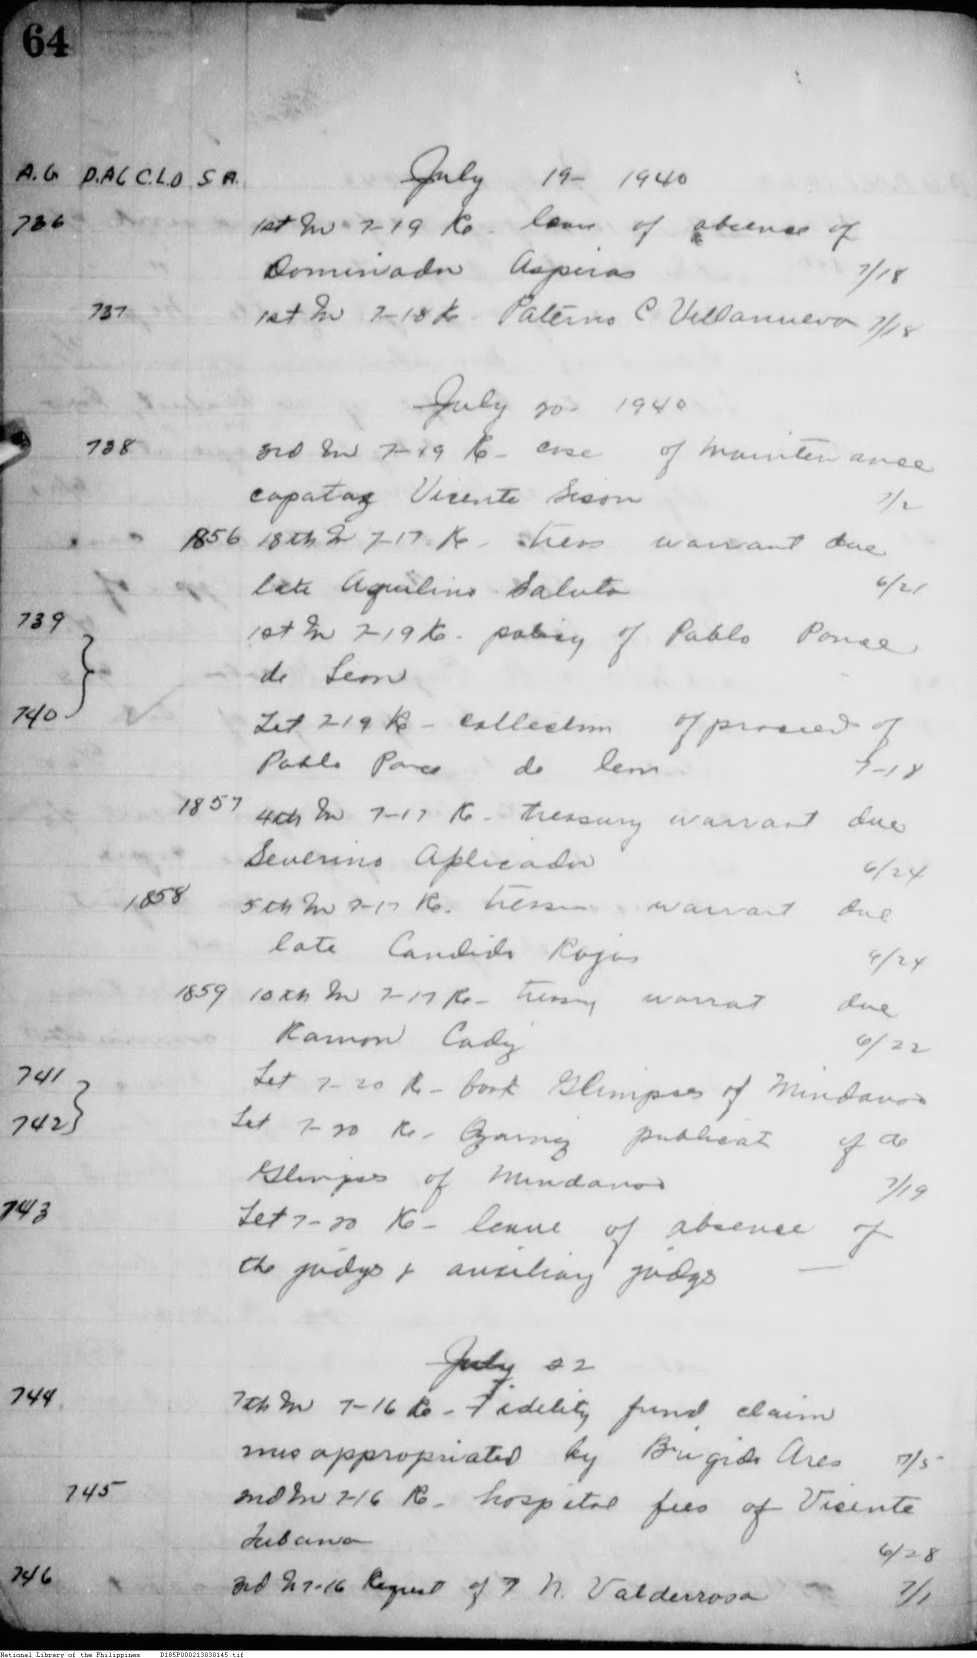 64
A.G D.AG C.L.O S A. July 19- 1940
736 1st In 7-19 Re. leave of absence of
Dominador Aspiras 7/18
737 1st In 7-18 Re Paterno C Villanueva 7/18
July 20- 1940
738 3rd In 7-19 Re- case of maintenance
capataz Vicente Sison 7/2
1856 18th In 7-17 Re- treas warrant due
late Aquilino Saluta 6/21
739 1st In 7-19 Re. policy of Pablo Ponce
de Leon
740 Let 7-19 Re - collection of proceed of
Pablo Ponce de leon 7-18
1857 4th In 7-17 Re- treasury warrant due
Severino Aplicador 6/24
1858 5th In 7-17 Re. warrant due
late Candido Rojas 6/24
1859 10th In 7-17 Re- warrat due
Ramon Cadiz 6/22
741 Let 7-20 Re- book Glimpses of Mindanao
742 Let 7-20 Re- publicat of de
Glimpses of Mindanao 7/19
743 Let 7-20 Re- leave of absence of
the judge & auxiliary judge —
July 22
744 7th In 7-16 Re- Fidelity fund claim
misappropriated by Brigido Ares 7/5
745 2nd In 7-16 Re- hospital fees of Vicente
Tubawa 6/28
746 3rd In 7-16 Request of T N. Valderrosa 7/1
National Library of the Philippines D185P000213038145.tif